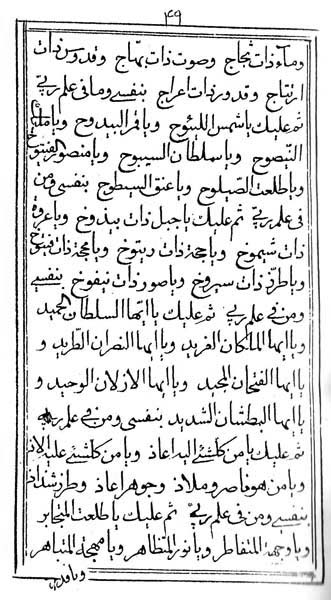 ٤٩
وماء ذات ثجاج وصوت ذات بهاج وقدوس ذات
ارتتاج وقدور ذات اعراج بنفسي وما في علم ربي
ثم عليك يا شمس اللينوح ويا قمر البيدوح ويا
النيصوح ويا سلطان السيبوح ويا منصور
ويا طلعت الصيلوح ويا عنق السيطوح بنفسي ومن
في علم ربي ثم عليك يا جبل ذات بيذوخ ويا عروة
ذات شيموخ ويا حجة ذات ريتوخ ويا محجة ذات
ويا طرز ذات سيروخ ويا صور ذات نيفوخ بنفسي
ومن في علم ربي ثم عليك يا ايها السلطان الحميد
ويا ايها الملكان الفريد ويا ايها النصران الطريد و
يا ايها الفتحان المجيد ويا ايها الازلان الوحيد و
يا ايها البطشان الشديد بنفسي ومن في علم ربي
ثم عليك يا من كلشئ اليه عاذ ويا من كلشئ عليه لاذ
ويا من هو ناصر وملاذ وجوهر اعاذ وطرز شذاذ
بنفسي ومن في علم ربي ثم عليك يا طلعت المتجابر
ويا وجهة المتفاطر ويا نور المتظاهر ويا مهجة المتباهر